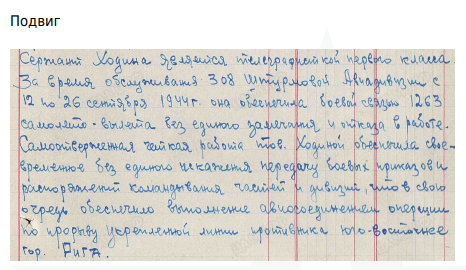 Подвиг
Сержант Ходина является телеграфисткой первого класса
За время обслуживания 308 Штурмовой Авиадивизии с
12 по 26 сентября 1944 г. она обеспечила боевой связью 1263
самолето-вылета без единого замечания и отказа в работе.
Самоотверженная четкая работа тов. Ходиной обеспечила свое-
временное без единого искажения передачу боевых приказов и
распоряжений командывания частей и дивизий, что в свою
очередь обеспечило выполнение авиасоединением операции
по прорыву укрепленной линии противника юго-восточнее
гор. Рига.